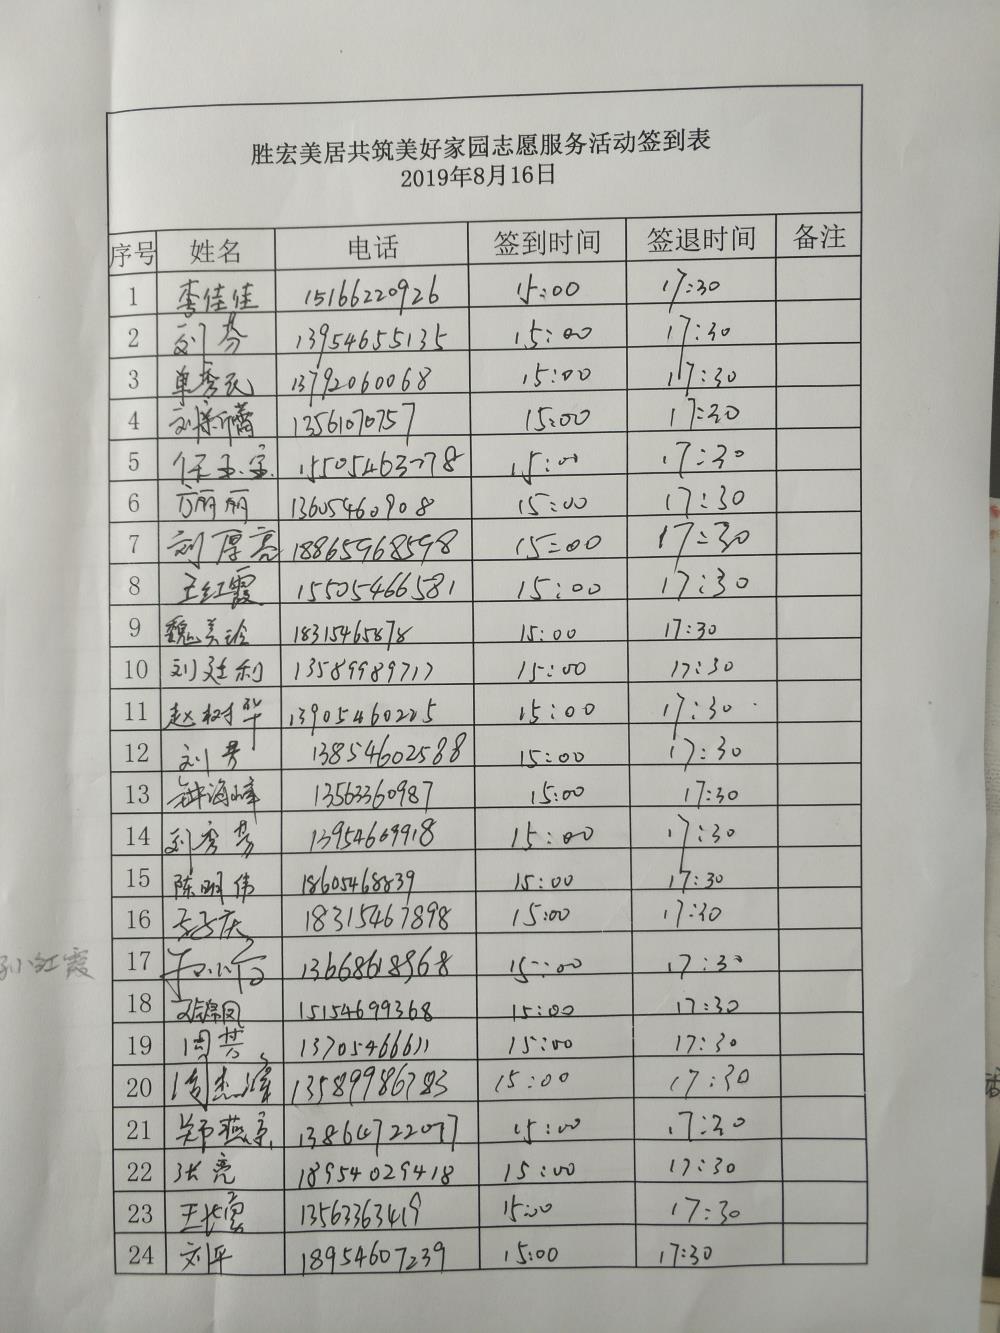 胜宏美居共筑美好家园志愿服务活动签到表
2019年8月16日
序号 姓名 电话 签到时间 签退时间 备注
1 李佳佳 15166220926 15:00 17:30
2 刘芬 13954655135 15:00 17:30
3 单秀民 13792060068 15:00 17:30
4 刘 13561070757 15:00 17:30
5 任玉宝 15:00 17:30
6 方丽丽 13605460908 15:00 17:30
7 刘厚亮 18865968598 15:00 17:30
8 王红霞 15505466581 15:00 17:30
9 魏美玲 18315465878 15:00 17:30
10 刘廷利 13589989717 15:00 17:30
11 赵树华 13905460225 15:00 17:30
12 刘芳 13854602588 15:00 17:30
13 钟海峰 13563360987 15:00 17:30
14 刘秀芳 13954609918 15:00 17:30
15 陈明伟 18605468839 15:00 17:30
16 18315467898 15:00 17:30
孙红霞
17 13668618968 15:00 17:30
18 15154699368 15:00 17:30
19 周芸 13705466611 15:00 17:30
20 周杰峰 13589986783 15:00 17:30
21 郑燕京 15:00 17:30
22 张亮 18954029418 15:00 17:30
23 王长勇 13563363419 15:00 17:30
24 刘平 18954607239 15:00 17:30